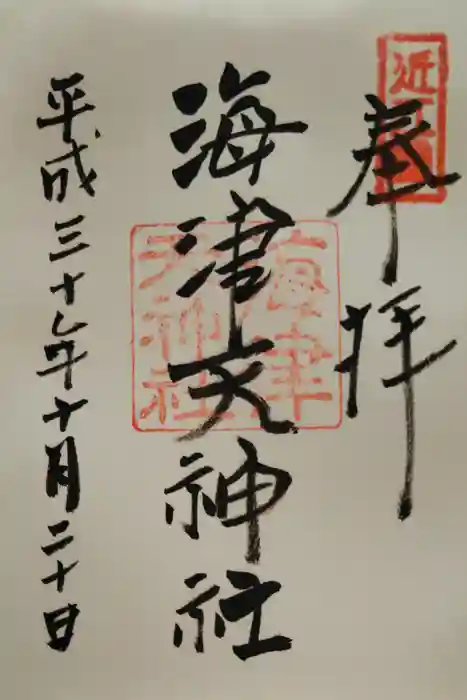 奉拝
海津天神社
平成三十年十月二十日
近
海津
天神社